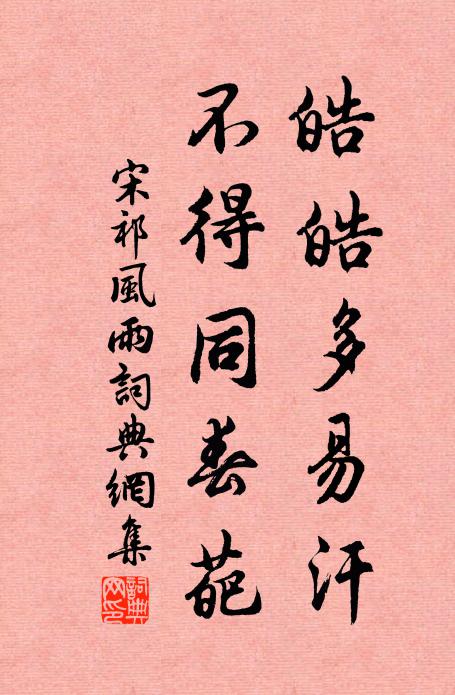 皓皓多易汗
不得同春葩
宋祁風雨詞典網集
詞典網印